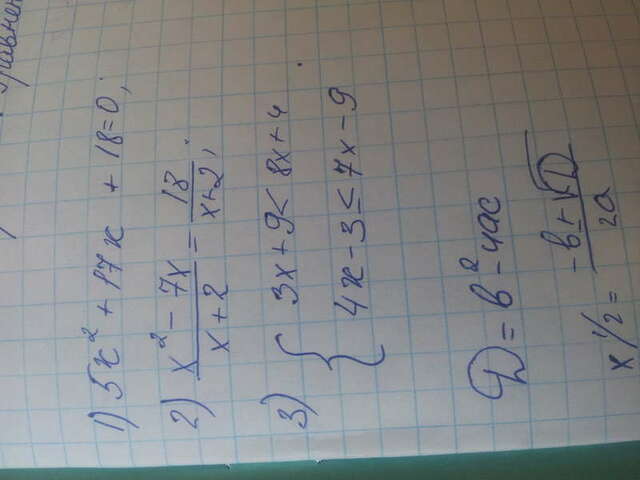 1) 5x² + 17x + 18 = 0;
2) x² - 7x / x + 2 = 18 / x + 2;
3) { 3x + 9 < 8x + 4
4x - 3 ≤ 7x - 9
D = b² - 4ac
x 1/2 = -b ± √D / 2a